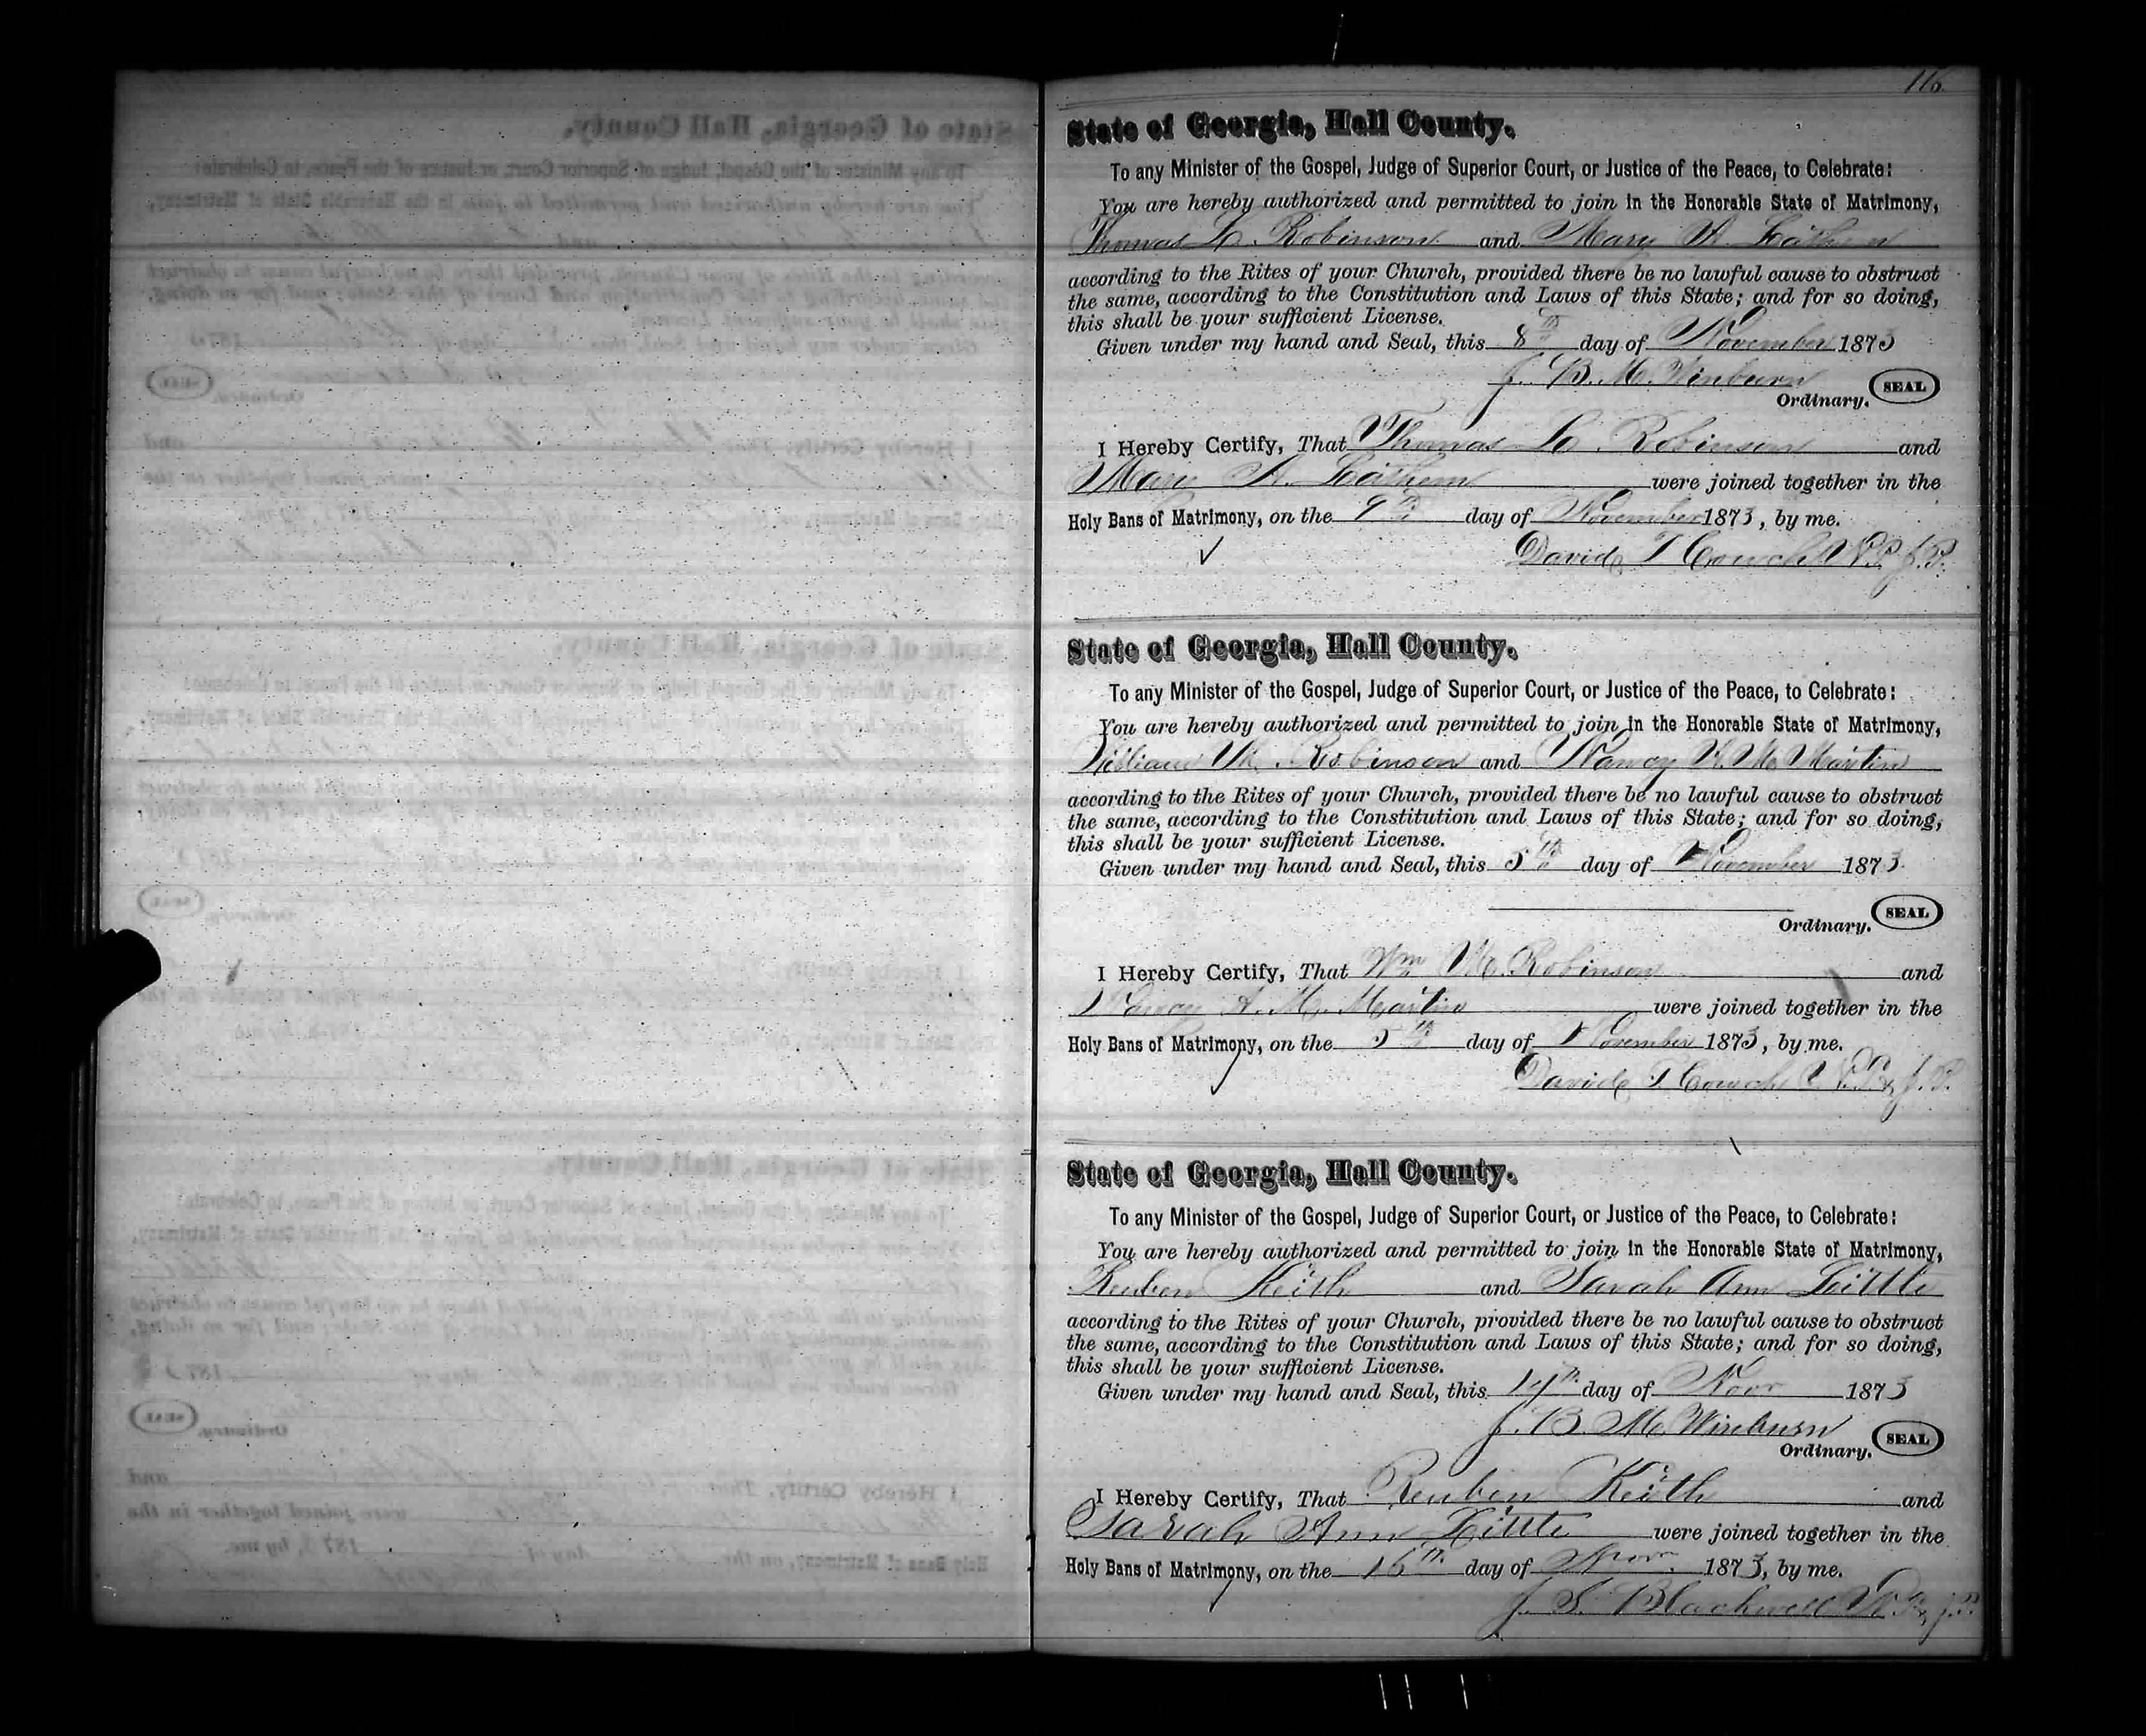 116
State of Georgia, Hall County.
To any Minister of the Gospel, Judge of Superior Court, or Justice of the Peace, to Celebrate:
You are hereby authorized and permitted to join in the Honorable State of Matrimony,
Thomas L. Robinson and Mary A. Lathem
according to the Rites of your Church, provided there be no lawful cause to obstruct
the same, according to the Constitution and Laws of this State; and for so doing,
this shall be your sufficient License.
Given under my hand and Seal, this 8th day of November 1873
J. B. M. Winburn
Ordinary. SEAL
I Hereby Certify, That Thomas L. Robinson and
Mary A. Lathem were joined together in the
Holy Bans of Matrimony, on the 9th day of November 1873, by me.
David T Couch N.P. & J.P.
State of Georgia, Hall County.
To any Minister of the Gospel, Judge of Superior Court, or Justice of the Peace, to Celebrate:
You are hereby authorized and permitted to join in the Honorable State of Matrimony,
William M. Robinson and Nancy A. M. Martin
according to the Rites of your Church, provided there be no lawful cause to obstruct
the same, according to the Constitution and Laws of this State; and for so doing,
this shall be your sufficient License.
Given under my hand and Seal, this 5th day of November 1873.
Ordinary. SEAL
I Hereby Certify, That Wm M. Robinson and
Nancy A. M. Martin were joined together in the
Holy Bans of Matrimony, on the 5th day of November 1873, by me.
David T Couch N.P. & J.P.
State of Georgia, Hall County.
To any Minister of the Gospel, Judge of Superior Court, or Justice of the Peace, to Celebrate:
You are hereby authorized and permitted to join in the Honorable State of Matrimony,
Reuben Keith and Sarah Ann Little
according to the Rites of your Church, provided there be no lawful cause to obstruct
the same, according to the Constitution and Laws of this State; and for so doing,
this shall be your sufficient License.
Given under my hand and Seal, this 14th day of Novr 1873
J. B. M. Winburn
Ordinary. SEAL
I Hereby Certify, That Reuben Keith and
Sarah Ann Little were joined together in the
Holy Bans of Matrimony, on the 16th day of Novr. 1873, by me.
J. S. Blackwell N.P. & J.P.